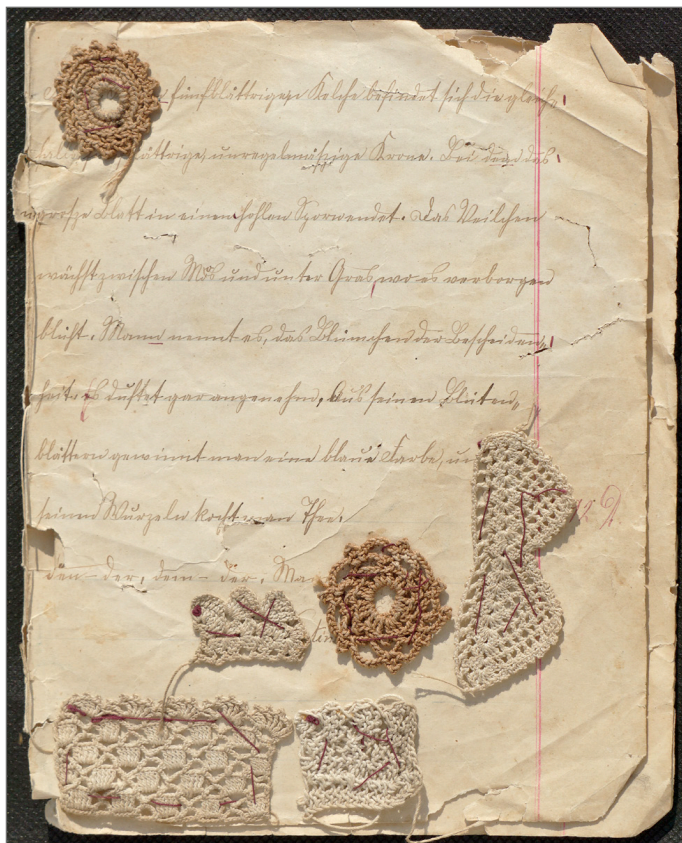 fünfblättrigen Kelche befindet sich die gleich-
blättrige, unregelmäszige Krone. Bei das
grosze Blatt in einen hohlen Sporn endet. Das Veilchen
wächst zwischen Mos und unter Gras, wo es verborgen
blüht. Mann nennt es, das Blümchen der Bescheiden-
heit. Es duftet gar angenehm. Aus seinen Blüten-
blättern gewinnt man eine blaue Farbe, un
seinen Wurzeln kocht man Thee.
den - der, dem - der. Ma